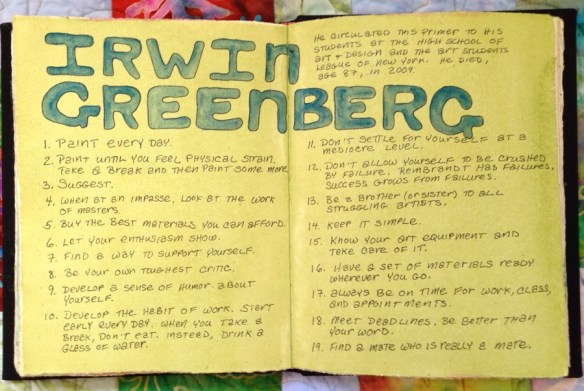 IRWIN
GREENBERG
1. PAINT EVERY DAY.
2. PAINT UNTIL YOU FEEL PHYSICAL STRAIN.
TAKE A BREAK AND THEN PAINT SOME MORE
3. SUGGEST.
4. WHEN AT AN IMPASSE, LOOK AT THE WORK
OF MASTERS.
5. BUY THE BEST MATERIALS YOU CAN AFFORD.
6. LET YOUR ENTHUSIASM SHOW.
7. FIND A WAY TO SUPPORT YOURSELF.
8. BE YOUR OWN TOUGHEST CRITIC.
9. DEVELOP A SENSE OF HUMOR ABOUT
YOURSELF.
10. DEVELOP THE HABIT OF WORK. START
EARLY EVERY DAY. WHEN YOU TAKE A
BREAK, DON'T EAT. INSTEAD, DRINK A
GLASS OF WATER.
HE CIRCULATED THIS PRIMER TO HIS
STUDENTS AT THE HIGH SCHOOL OF
ART & DESIGN AND THE ART STUDENTS
LEAGUE OF NEW YORK. HE DIED,
AGE 87, IN 2009.
11. DON'T SETTLE FOR YOURSELF AT A
MEDIOCRE LEVEL.
12. DON'T ALLOW YOURSELF TO BE CRUSHED
BY FAILURE. REMBRANDT HAD FAILURES.
SUCCESS GROWS FROM FAILURES.
13. BE A BROTHER (OR SISTER) TO ALL
STRUGGLING ARTISTS.
14. KEEP IT SIMPLE.
15. KNOW YOUR ART EQUIPMENT AND
TAKE CARE OF IT.
16. HAVE A SET OF MATERIALS READY
WHEREVER YOU GO.
17. ALWAYS BE ON TIME FOR WORK, CLASS,
AND APPOINTMENTS.
18. MEET DEADLINES, BE BETTER THAN
YOUR WORD.
19. FIND A MATE WHO IS REALLY A MATE.